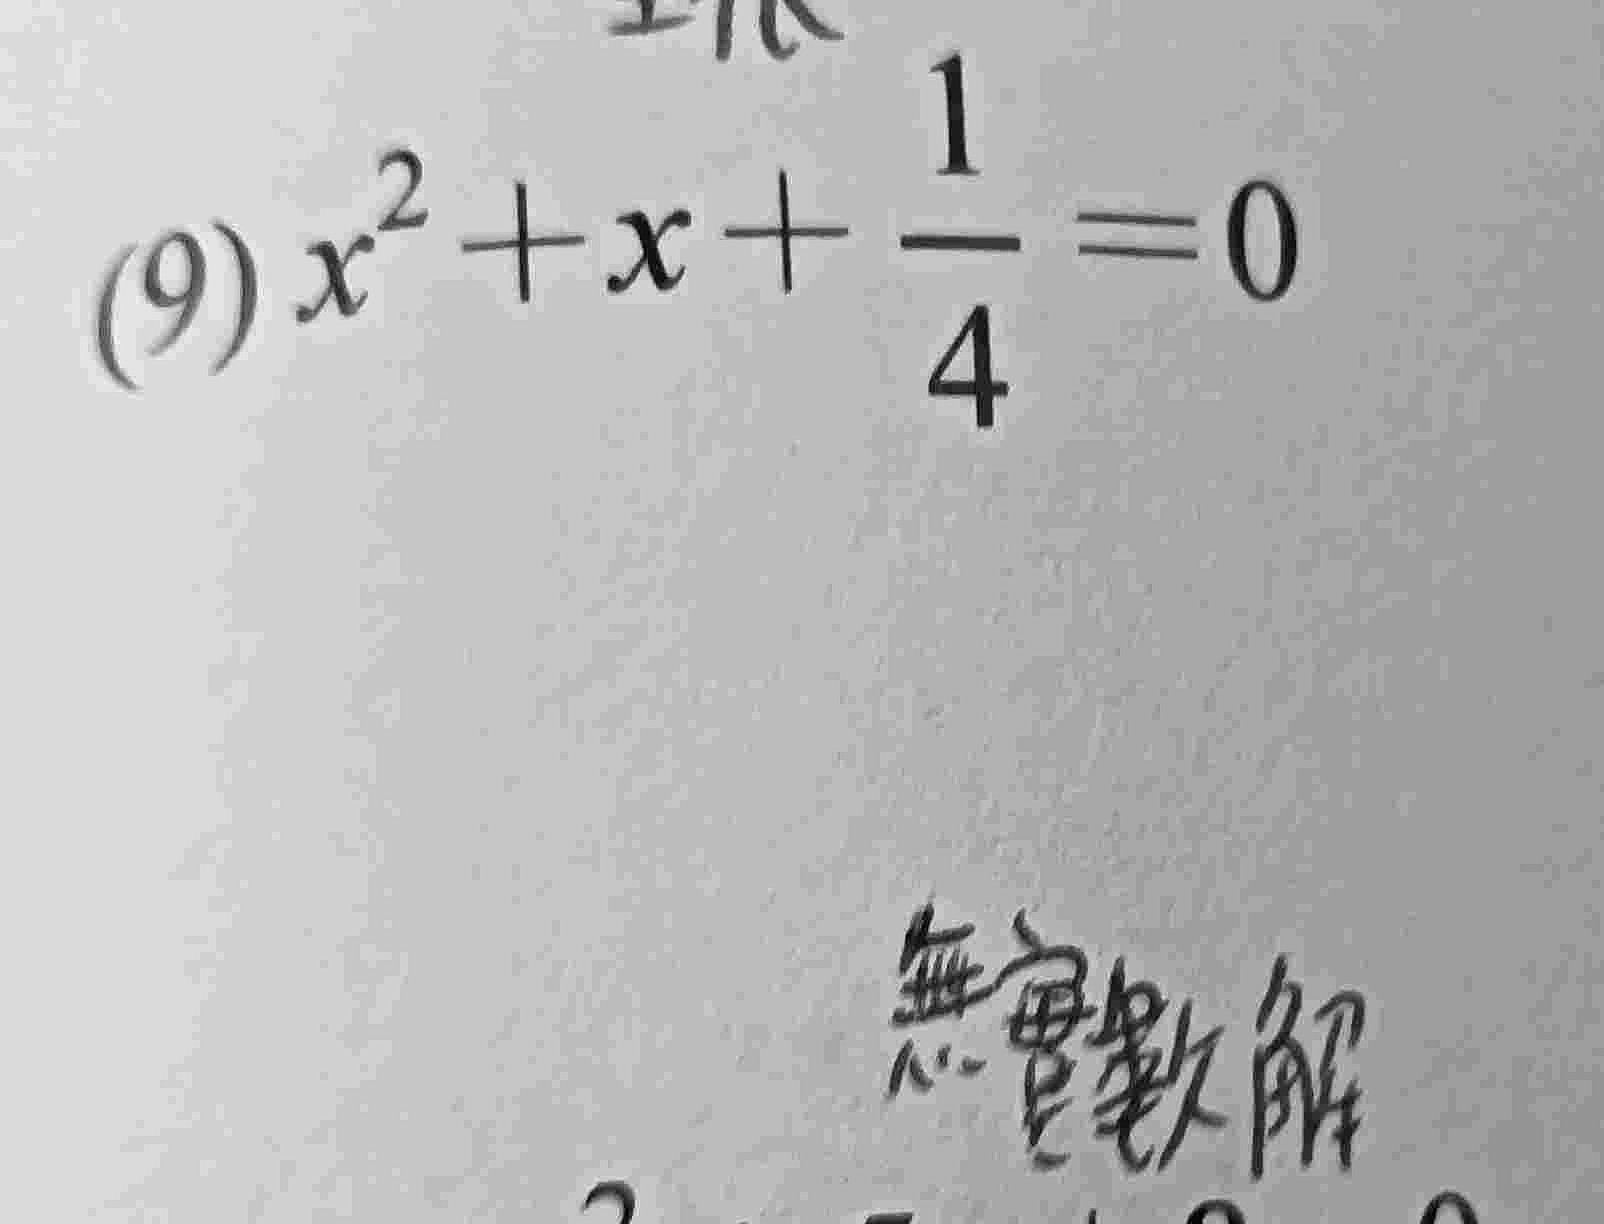 (9) x² + x + 1/4 = 0
無實數解